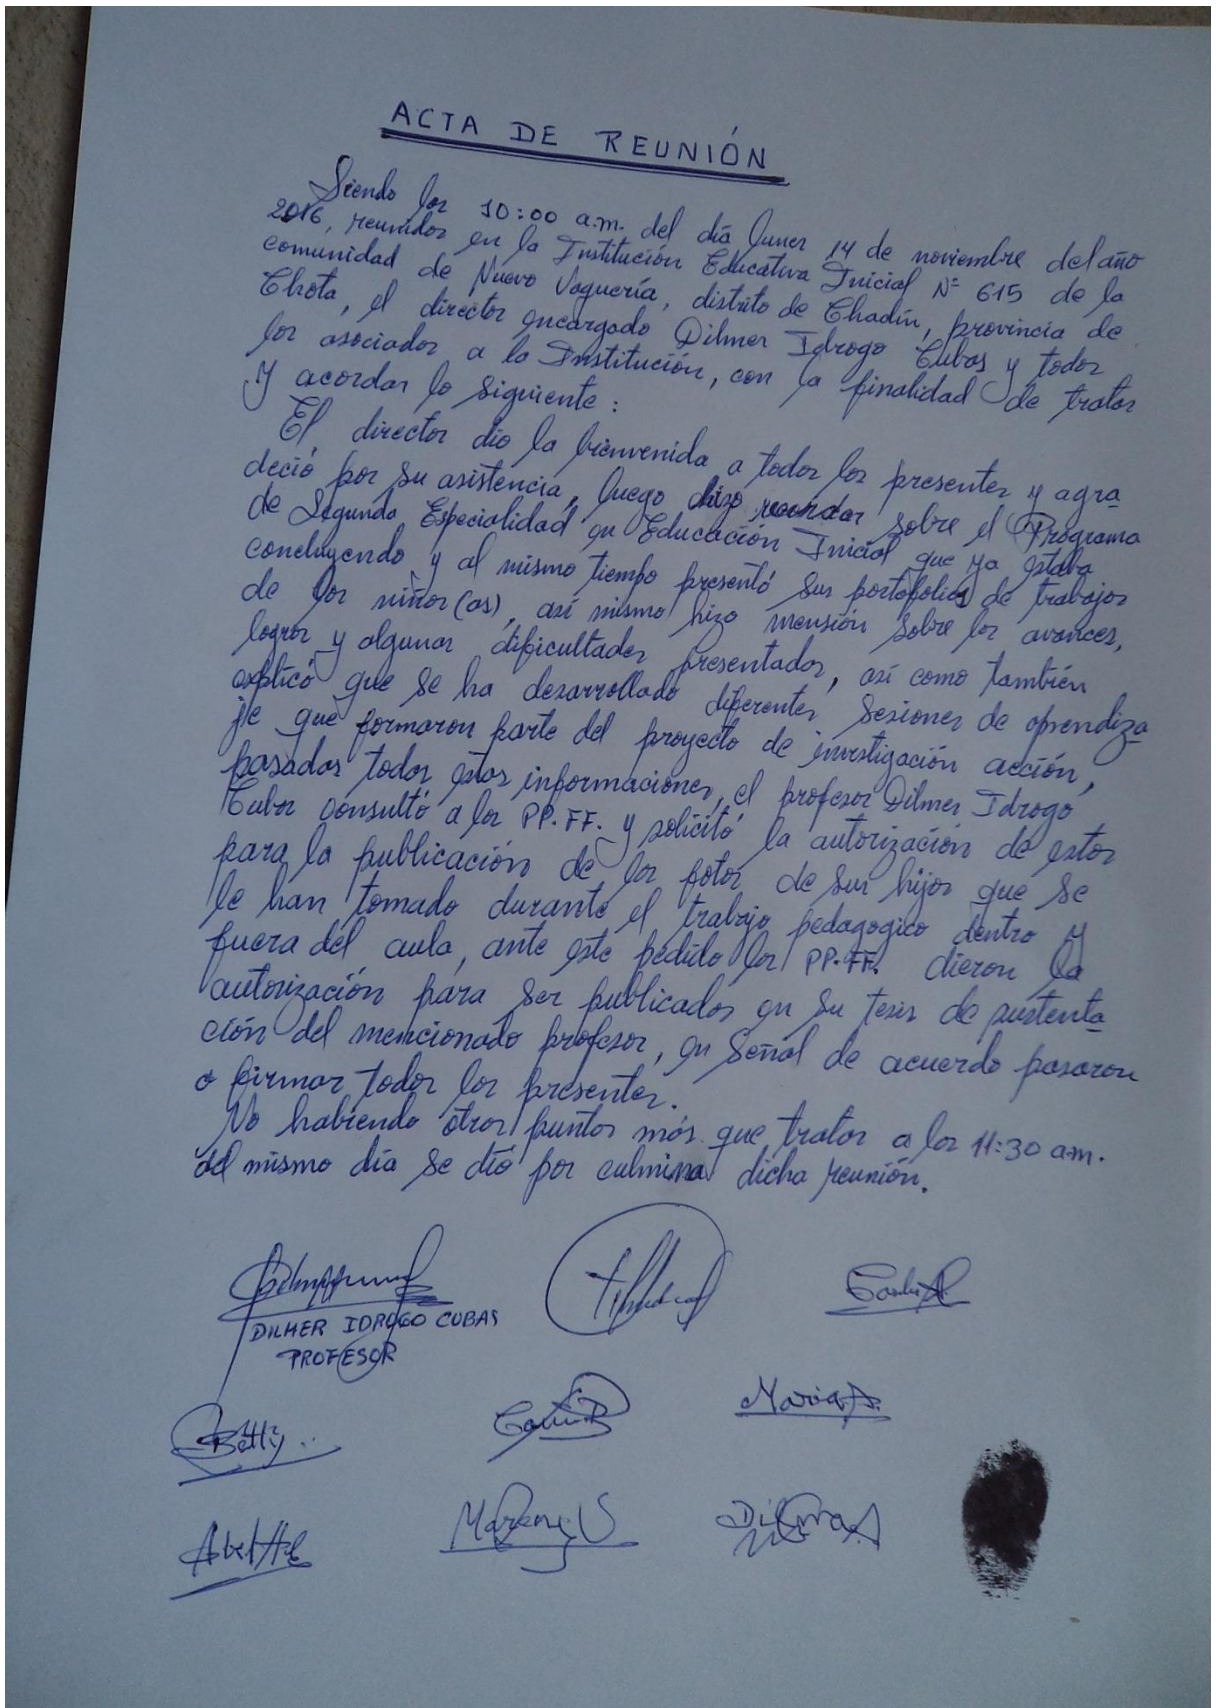 ACTA DE REUNIÓN
Siendo las 10:00 a.m. del día lunes 14 de noviembre del año
2016, reunidos en la Institución Educativa Inicial N° 615 de la
comunidad de Nuevo Vaquería, distrito de Chadín, provincia de
Chota, el director encargado Dilmer Idrogo Cubas y todos
los asociados a la Institución, con la finalidad de tratar
y acordar lo siguiente:
El director dio la bienvenida a todos los presentes y agra
deció por su asistencia, luego hizo recordar sobre el Programa
de Segunda Especialidad en Educación Inicial que ya estaba
concluyendo y al mismo tiempo presentó sus portafolios de trabajos
de los niños(as), así mismo hizo mensión sobre los avances,
logros y algunas dificultades presentadas, así como también
explicó que se ha desarrollado diferentes sesiones de aprendiza
je que formaron parte del proyecto de investigación acción,
pasadas todas estas informaciones, el profesor Dilmer Idrogo
Cubas consultó a los PP.FF. y solicitó la autorización de estos
para la publicación de las fotos de sus hijos que se
le han tomado durante el trabajo pedagogico dentro y
fuera del aula, ante este pedido los PP.FF. dieron la
autorización para ser publicados en su tesis de sustenta
ción del mencionado profesor, en señal de acuerdo pasaron
a firmar todos los presentes.
No habiendo otros puntos más que tratar a las 11:30 a.m.
del mismo día se dió por culmina dicha reunión.
DILMER IDROGO CUBAS
PROFESOR
Betty
Maria A.